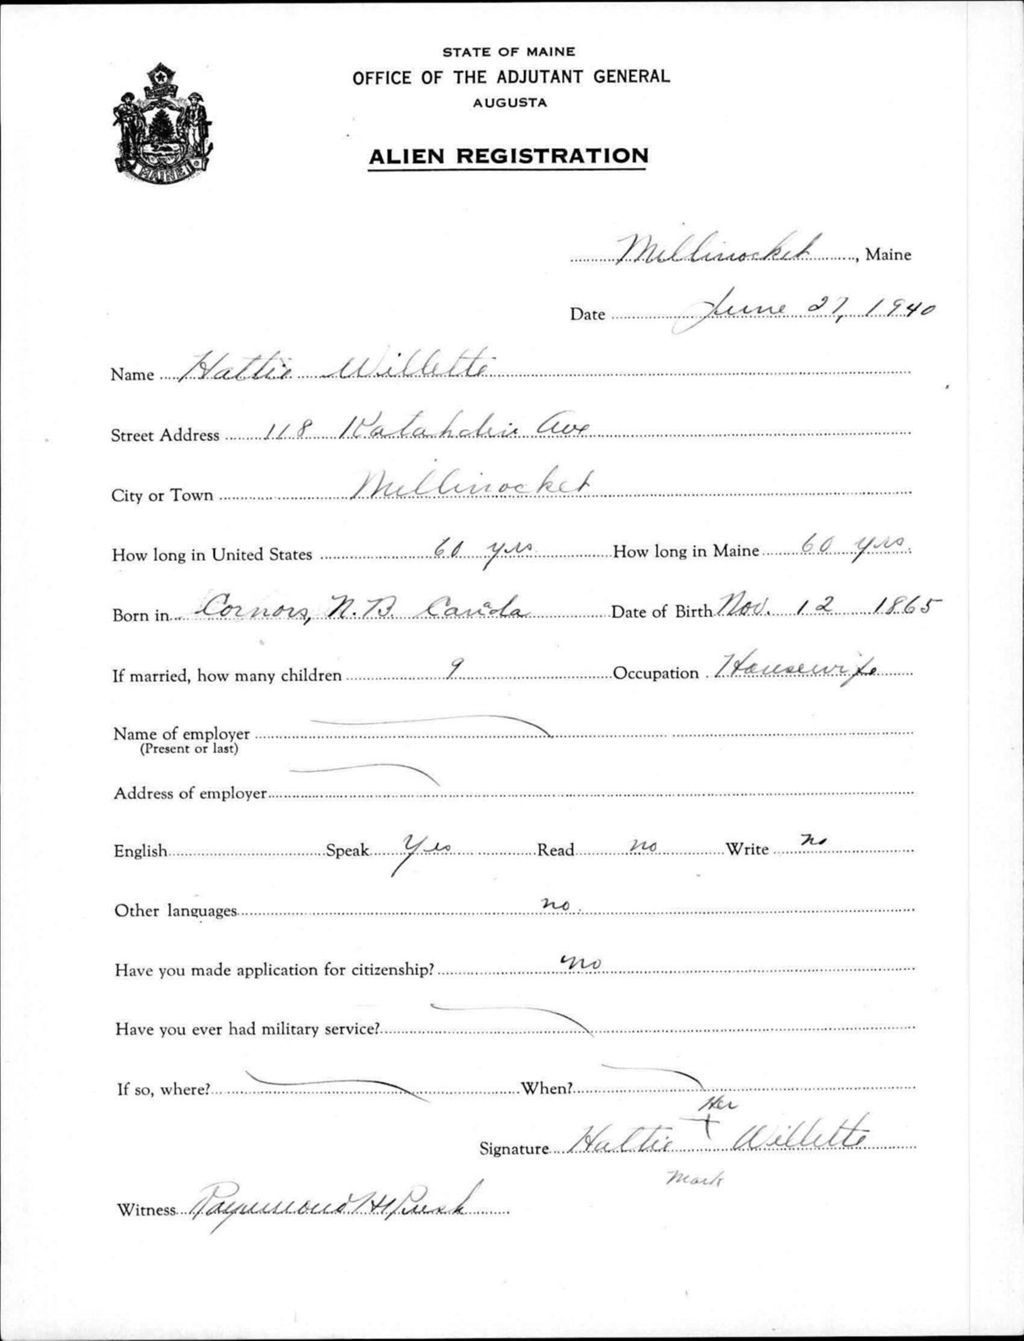 STATE OF MAINE
OFFICE OF THE ADJUTANT GENERAL
AUGUSTA
ALIEN REGISTRATION
MAINE
Millinocket, Maine
Date June 27, 1940
Name Hattie Willette
Street Address 118 Katahdin Ave
City or Town Millinocket
How long in United States 60 yrs How long in Maine 60 yrs.
Born in Connors, N.B Canada Date of Birth Nov. 12 1865
If married, how many children 9 Occupation Housewife
Name of employer
(Present or last)
Address of employer
English Speak Yes Read no Write no
Other languages no.
Have you made application for citizenship? no
Have you ever had military service?
If so, where? When?
Her
Signature Hattie X Willette
Mark
Witness Raymond H